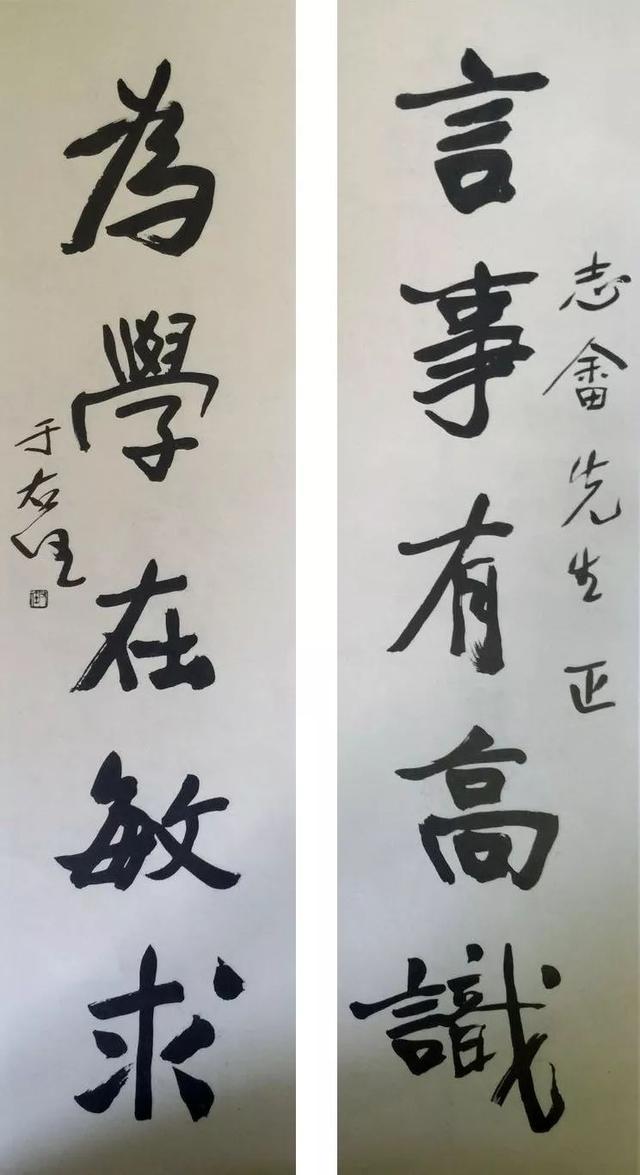 志畬先生正
言事有高識
為學在敏求
于右任